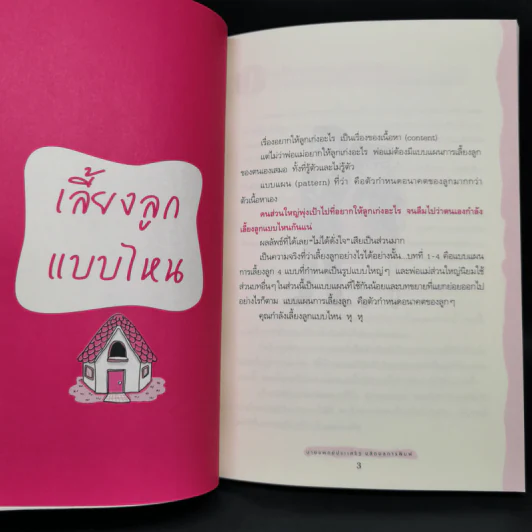 เลี้ยงลูก
แบบไหน
เรื่องอยากให้ลูกเก่งอะไร เป็นเรื่องของเนื้อหา (content)
แต่ไม่ว่าพ่อแม่อยากให้ลูกเก่งอะไร พ่อแม่ต้องมีแบบแผนการเลี้ยงลูก
ของตนเองเสมอ ทั้งที่รู้ตัวและไม่รู้ตัว
แบบแผน (pattern) ที่ว่า คือตัวกำหนดอนาคตของลูกมากกว่า
ตัวเนื้อหาเอง
คนส่วนใหญ่พุ่งเป้าไปที่อยากให้ลูกเก่งอะไร จนลืมไปว่าตนเองกำลัง
เลี้ยงลูกแบบไหนกันแน่
ผลลัพธ์ที่ได้เลย "ไม่ได้ดั่งใจ" เสียเป็นส่วนมาก
เป็นความจริงที่ว่าเลี้ยงลูกอย่างไรได้อย่างนั้น...บทที่ 1-4 คือแบบแผน
การเลี้ยงลูก 4 แบบที่กำหนดเป็นรูปแบบใหญ่ๆ และพ่อแม่ส่วนใหญ่นิยมใช้
ส่วนบทอื่นๆ ในส่วนนี้เป็นแบบแผนที่ใช้กันน้อยและบทขยายที่แยกย่อยออกไป
อย่างไรก็ตาม แบบแผนการเลี้ยงลูก คือตัวกำหนดอนาคตของลูกๆ
คุณกำลังเลี้ยงลูกแบบไหน หุ หุ
3